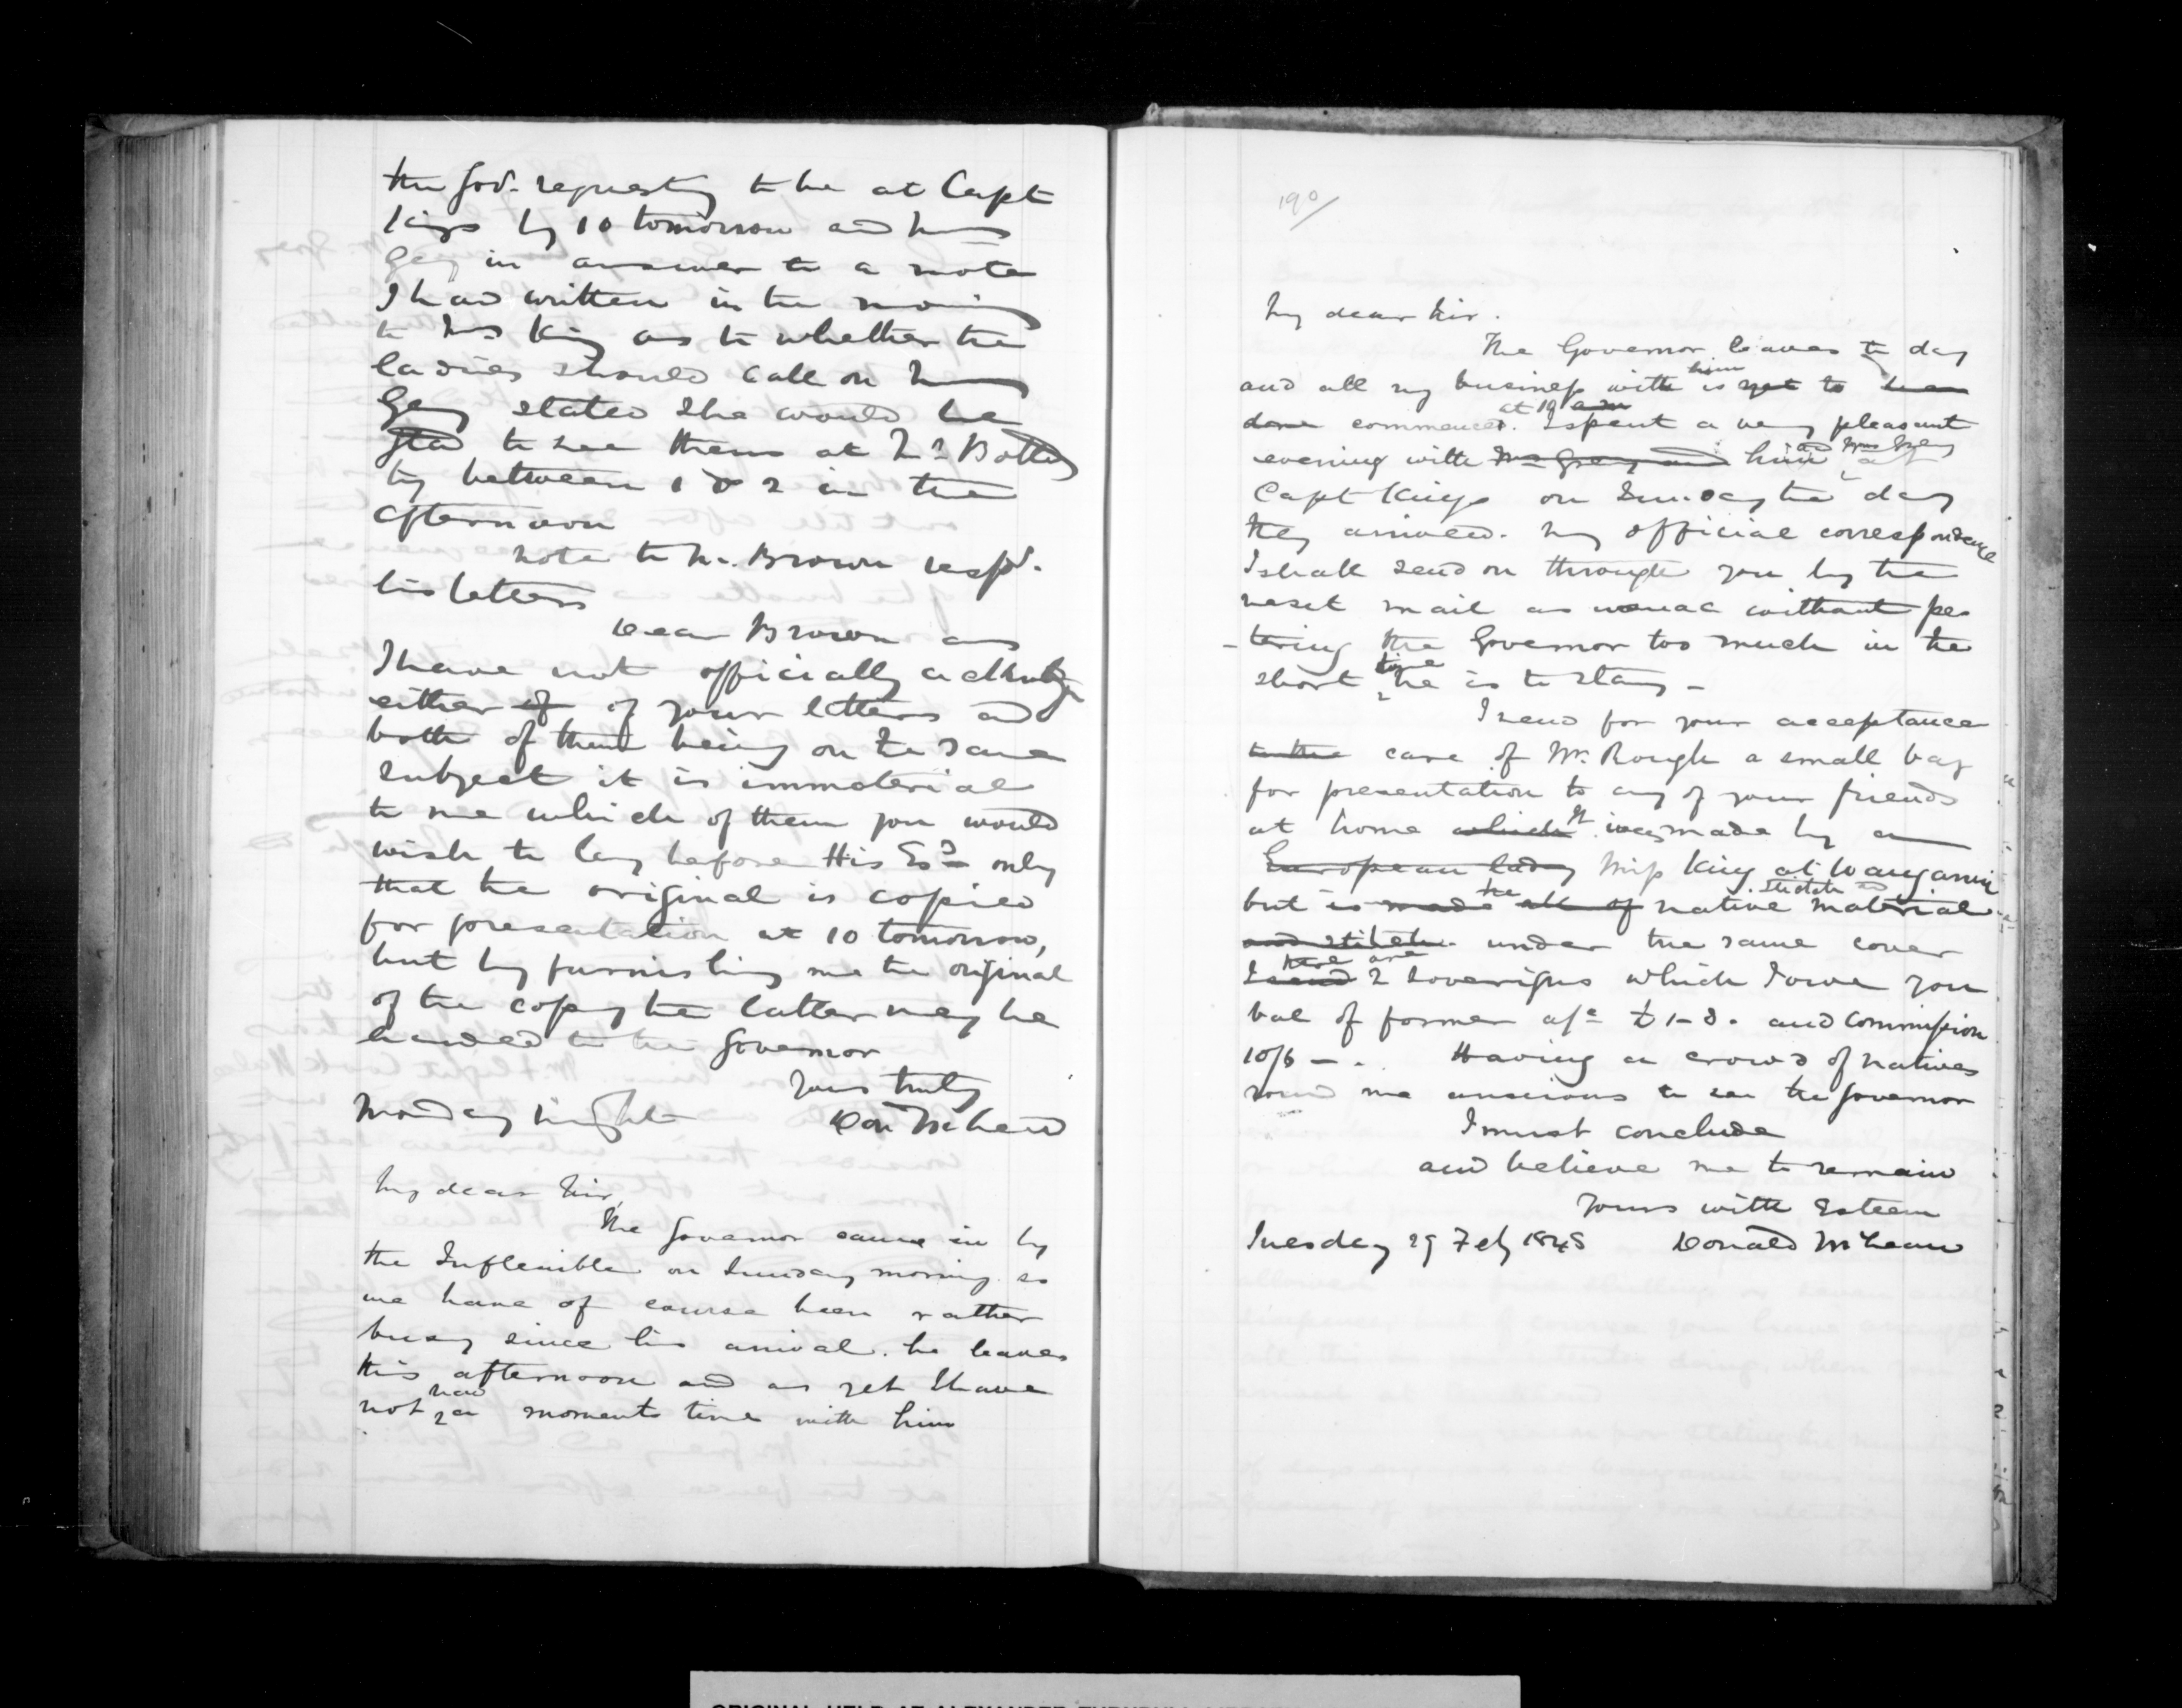 the Gov. requesting to be at Capt
Kings by 10 tomorrow and Mrs
Grey in answer to a note
I had written in the morning
to Mrs King as to whether the
ladies should call on Mrs
Grey stated she would be
glad to see them at Mr
by between 1 & 2 in the
afternoon
note to Mr. Brown respg.
his letters
Dear Brown as
I have not officially acknlge
either of of your letters and
both of them being on the same
subject it is immaterial
to me which of them you would
wish to lay before His Ex only
that the original is copied
for presentation at 10 tomorrow,
but by furnishing me the original
of the copy the latter may be
handed to the Governor
Yours truly
Monday night Don McLean
My dear Sir,
The Governor came in by
the Inflexible on Sunday morning so
we have of course been rather
busy since his arrival. he leaves
this afternoon and as yet I have
not had a moments time with him
190/
My dear Sir.
The Governor leaves to day
and all my business with him is yet to been
done commence. at 10 a.m I spent a very pleasant
evening with Mrs Grey and him and Mrs Grey at
Capt Kings on Sunday the day
they arrived. My official correspondence
I shall send on through you by the
next mail as usual without pes
-tering the Governor too much in the
short time he is to stay -
I send for your acceptance
to the care of Mr. Rough a small bag
for presentation to any of your friends
at home which It was made by a
European lady Miss King at Wanganui
but is made the all of native stitch and material
and stitch. under the same cover
I send there are 2 Soverigns which I owe you
bal of former a/c £1-8. and Commission
10/6 -. Having a crowd of natives
round me anxious to see the Governor
I must conclude
and believe me to remain
Yours with Esteem
Tuesday 29 Feby 1848 Donald McLean